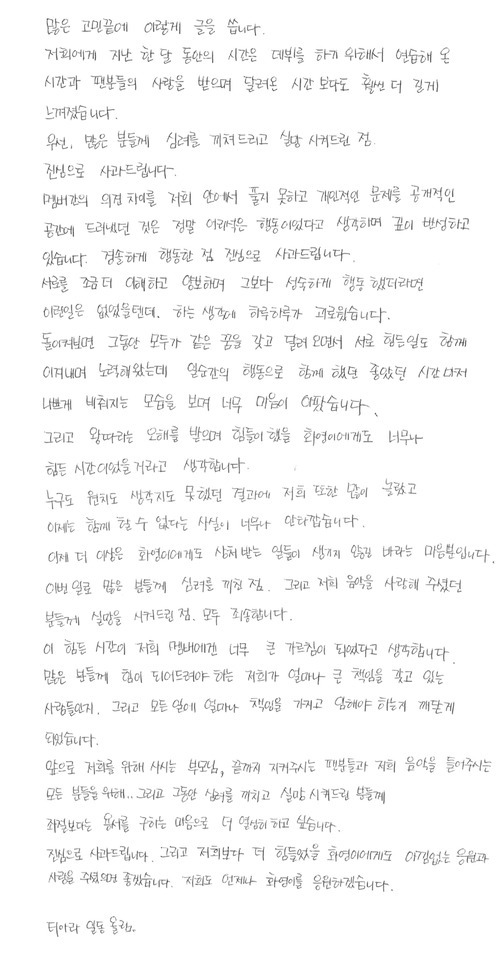 많은 고민끝에 이렇게 글을 씁니다.
저희에게 지난 한 달 동안의 시간은 데뷔를 하기 위해서 연습해 온
시간과 팬분들의 사랑을 받으며 달려온 시간 보다도 훨씬 더 길게
느껴졌습니다.
우선, 많은 분들께 심려를 끼쳐드리고 실망 시켜드린 점.
진심으로 사과드립니다.
멤버간의 의견 차이를 저희 안에서 풀지 못하고 개인적인 문제를 공개적인
공간에 드러냈던 것은 정말 어리석은 행동이었다고 생각하며 깊이 반성하고
있습니다. 경솔하게 행동한 점 진심으로 사과드립니다.
서로를 조금 더 이해하고 양보하며 그보다 성숙하게 행동 했더라면
이런일은 없었을텐데. 하는 생각에 하루하루가 괴로웠습니다.
돌이켜보면 그동안 모두가 같은 꿈을 갖고 달려 오면서 서로 힘든일도 함께
이겨내며 노력해왔는데 일순간의 행동으로 함께 했던 좋았던 시간마저
나쁘게 비춰지는 모습을 보며 너무 마음이 아팠습니다.
그리고 왕따라는 오해를 받으며 힘들어 했을 화영이에게도 너무나
힘든 시간이었을거라고 생각합니다.
누구도 원치도 생각지도 못했던 결과에 저희 또한 많이 놀랐고
이제는 함께 할 수 없다는 사실이 너무나 안타깝습니다.
이제 더 이상은 화영이에게도 상처 받는 일들이 생기지 않길 바라는 마음뿐입니다.
이번 일로 많은 분들께 심려를 끼친 점. 그리고 저희 음악을 사랑해 주셨던
분들께 실망을 시켜드린 점. 모두 죄송합니다.
이 힘든 시간이 저희 멤버에겐 너무 큰 가르침이 되었다고 생각합니다.
많은 분들께 힘이 되어드려야 하는 저희가 얼마나 큰 책임을 갖고 있는
사람들인지. 그리고 모든 일에 얼마나 책임을 가지고 임해야 하는지 깨닫게
되었습니다.
앞으로 저희를 위해 사시는 부모님, 끝까지 지켜주시는 팬분들과 저희 음악을 들어주시는
모든 분들을 위해.. 그리고 그동안 심려를 끼치고 실망 시켜드린 분들께
좌절보다는 용서를 구하는 마음으로 더 열심히 하고 싶습니다.
진심으로 사과드립니다. 그리고 저희보다 더 힘들었을 화영이에게도 아낌없는 응원과
사랑을 주셨으면 좋겠습니다. 저희도 언제나 화영이를 응원하겠습니다.
티아라 일동 올림.